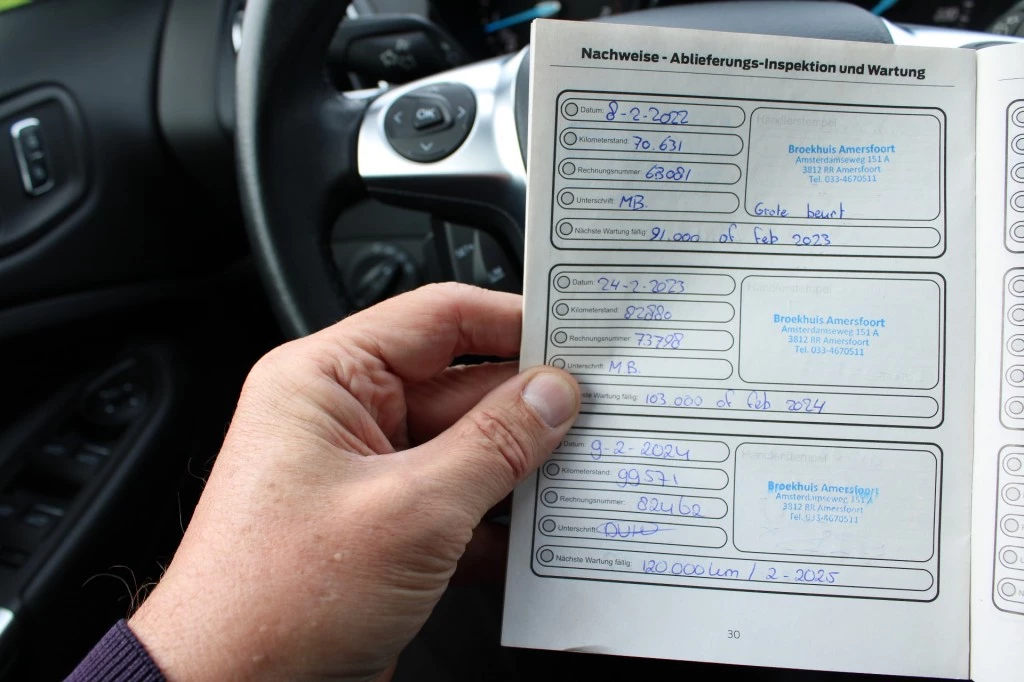 OK
Nachweise - Ablieferungs-Inspektion und Wartung
Datum: 8-2-2022
Kilometerstand: 70.631
Rechnungsnummer: 63081
Unterschrift: MB.
Nächste Wartung fällig: 91.000 of feb 2023
Händlerstempel
Broekhuis Amersfoort
Amsterdamseweg 151 A
3812 RR Amersfoort
Tel. 033-4670511
Grote beurt
Datum: 24-2-2023
Kilometerstand: 82880
Rechnungsnummer: 73798
Unterschrift: MB.
Wartung fällig: 103 000 of feb 2024
Händlerstempel
Broekhuis Amersfoort
Amsterdamseweg 151 A
3812 RR Amersfoort
Tel. 033-4670511
Datum: 9-2-2024
Kilometerstand: 99571
Rechnungsnummer: 82462
Unterschrift:
Nächste Wartung fällig: 120.000 km / 2-2025
Händlerstempel
Broekhuis Amersfoort
Amsterdamseweg 151 A
3812 RR Amersfoort
Tel. 033-4670511
30